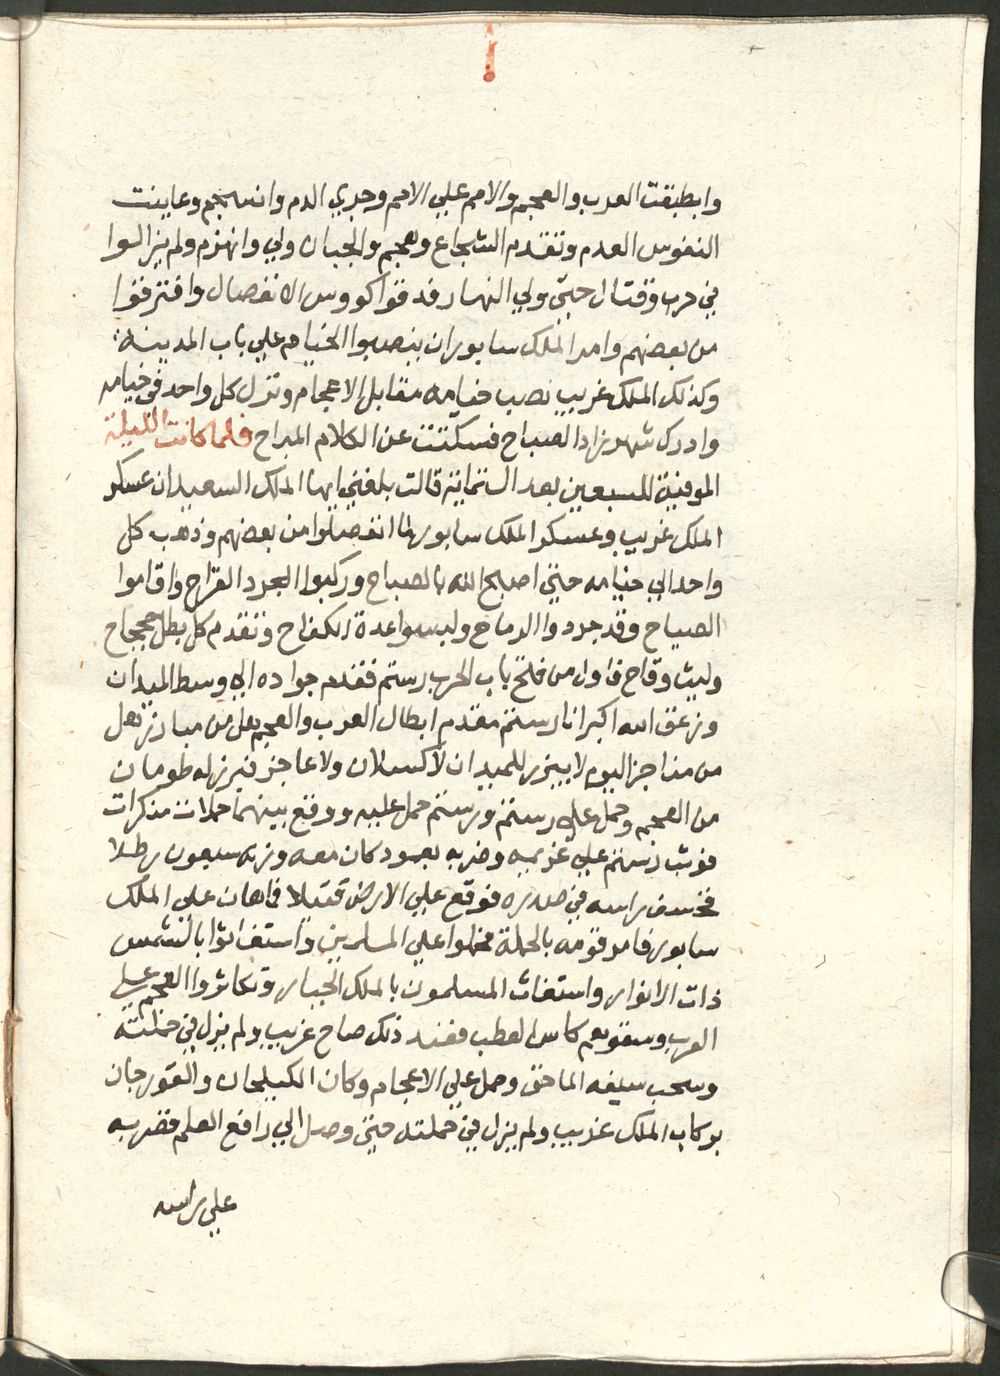 وانطبقت العرب والعجم والامم علي الامم وجري الدم وانسجم وعاينت
النفوس العدم وتقدم الشجاع وهجم والجبان ولي وانهزم ولم يزالوا
في حرب وقتال حتى ولي النهار فدقوا كووس الانفصال وافترقوا
من بعضهم وامر الملك سابور ان ينصبوا الخيام علي باب المدينة
وكذلك الملك غريب نصب خيامه مقابل الاعجام ونزل كل واحد في خيامه
وادرك شهرزاد الصباح فسكتت عن الكلام المباح فلما كانت الليلة
الموفية للسبعين بعد الستماية قالت بلغني ايها الملك السعيد ان عسكر
الملك غريب وعسكر الملك سابور لما انفصلوا من بعضهم وذهب كل
واحد الي خيامه حتى اصبح الله بالصباح وركبوا الجرد القراح واقاموا
الصياح وقد جردوا الرماح ولبسوا عدة الكفاح وتقدم كل بطل جحجاح
وليث وقاح فاول من فتح باب الحرب رستم فقدم جواده الي وسط الميدان
وزعق الله اكبر انا رستم مقدم ابطال العرب والعجم هل من مبارز هل
من مناجز اليوم لا يبرز للميدان لا كسلان ولا عاجز فبرز له طومان
من العجم وحمل علي رستم ورستم حمل عليه ووقع بينهما حملات منكرات
فوثب رستم علي غريمه وضربه بعمود كان معه وزنه سبعون رطلا
فخسف راسه في صدره فوقع علي الارض قتيلا فاهان علي الملك
سابور فامر قومه بالحملة فحملوا علي المسلمين واستغاثوا بالشمس
ذات الانوار واستغاث المسلمون بالملك الجبار وتكاثروا العجم علي
العرب وسقوهم كاس العطب فعند ذلك صاح غريب ولم يزل في حملته
وسحب سيفه الماحق وحمل علي الاعجام وكان الكيلجان والقورجان
بركاب الملك غريب ولم يزل في حملته حتى وصل الي رافع العلم فضربه
علي راسه